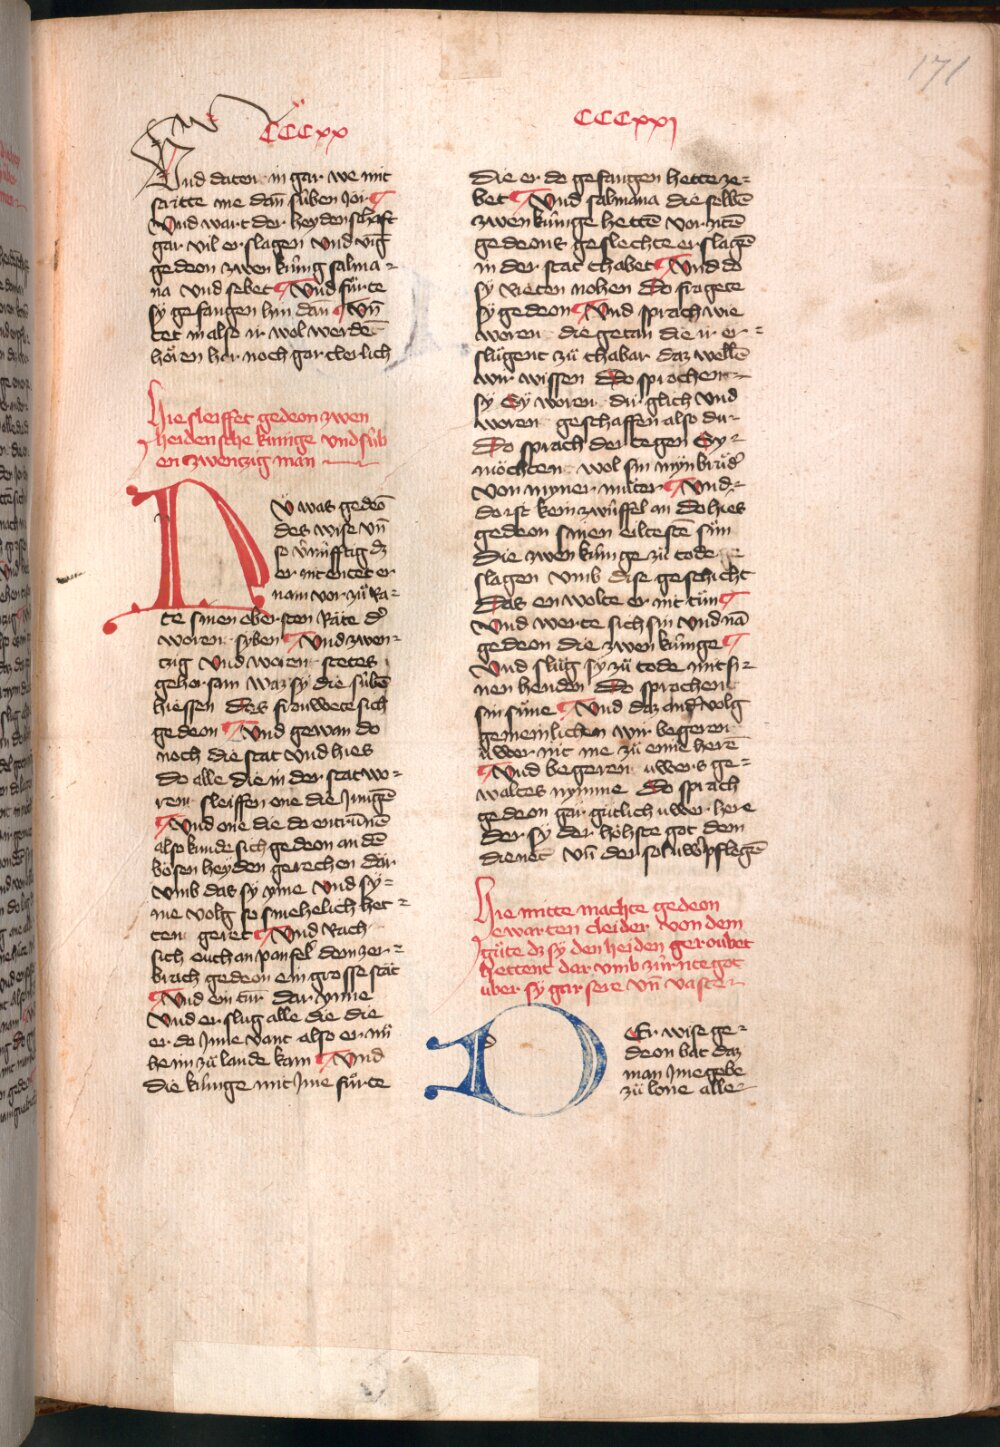 171
CCCxx
Vnd daten in gar we mit
stritte me dan süben Jor ¶
Vnd wart der heydenschaft
gar vil erslagen Vnd ving
gedeon zwen künig salma-
na Vnd sebet ¶ Vnd fürte
sy gefangen hin dan ¶ Vn̄
tet in also ir wol werdē
hören her noch gar clerlich
Hie sleiffet gedeon zwen
heidensche künige Vnd süb
en zwentzig man
NV was gedeō
des wise vn̄
so vnüfftig dz
er nam vor zü Ra-
te sinen obersten Räte d'
woren syben ¶ Vnd zwen-
tzig Vnd woren stetes
gehorsam waz sy die sübē
hiessen des frouwete sich
gedeon ¶ Vnd gewan do
noch die stat Vnd hies
do alle die in der stat wo-
ren sleiffen one die Jungē
¶ Vnd one die do entrūnē
also kunde sich gedeon an dē
bösen heyden gerechen dar
Vmb das sy yme Vnd sy-
me volg so smehelich het-
ten geret ¶ Vnd Rach
sich ouch an pansel dem zer-
brach gedeon ein grosse stat
¶ Vnd ein turn dar ynne
Vnd erslug alle die die
er do Jnne vant also er nü
heim zü lande kam ¶ Vnd
die künige mit Jme fürte
CCCxxj
die er do gefangen hette ze-
bet ¶ Vnd salmana die selbē
zwen künige hettē vor ziten
gedeons geslechte erslagē
in der stat thabet ¶ Vnd do
sy rieten nohen Do fragete
sy gedeon ¶ Vnd sprach wie
woren die getan die ir er-
slügent zü thabar daz wellē
wir wissen Do sprochen
sy Sy woren dir glich Vnd
woren geschaffen also du
Do sprach der tegen Sy
möchten wol sin myn brüd'
Von myner müter ¶ Vnd
do ist kein zwiffel an Do hies
gedeon sinen eiltestē sün
die zwen künige zü tode
slagen Vmb dise geschicht
Das en wolte er nit tün ¶
Vnd werte sich sin Vnd nā
gedeon die zwen künige ¶
Vnd slüg sy zü tode mit si-
nen henden Do sprachent
sin süne ¶ Vnd daz and' volg
gemeinlichen wir begeren
uwer nit me zü eime herē
¶ Vnd begeren uwers ge-
waltes nymme Do sprach
gedeon gar gütlich uwer here
der sy der höhste got dem
dienet Vn̄ der sol uw' pflegē
Hie mitte machte gedeon
ewarten cleider von dem
güte dz sy den heiden geroubet
hettent dar vmb zürnte got
über sy gar sere vn̄ vaste
DEr wise ge-
deon bat daz
man Jme gebe
zü lone alle